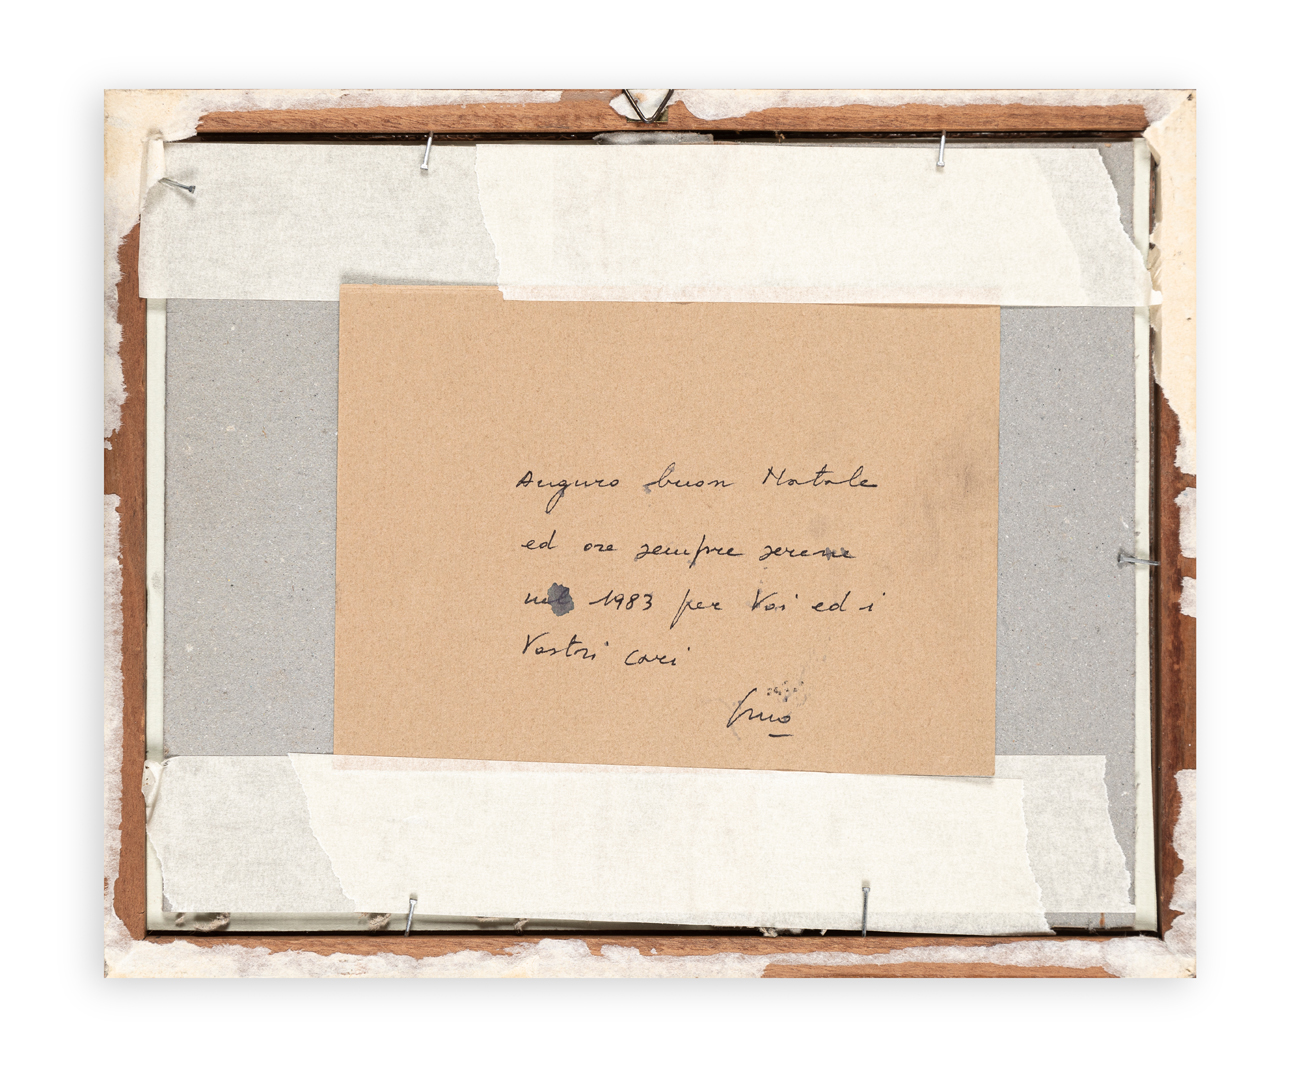 Auguro buon Natale
ed ore sempre serene
nel 1983 per Voi ed i
Vostri cari